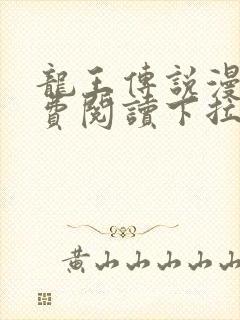 龍王傳説漫
費閱讀下拉
黃山山山山